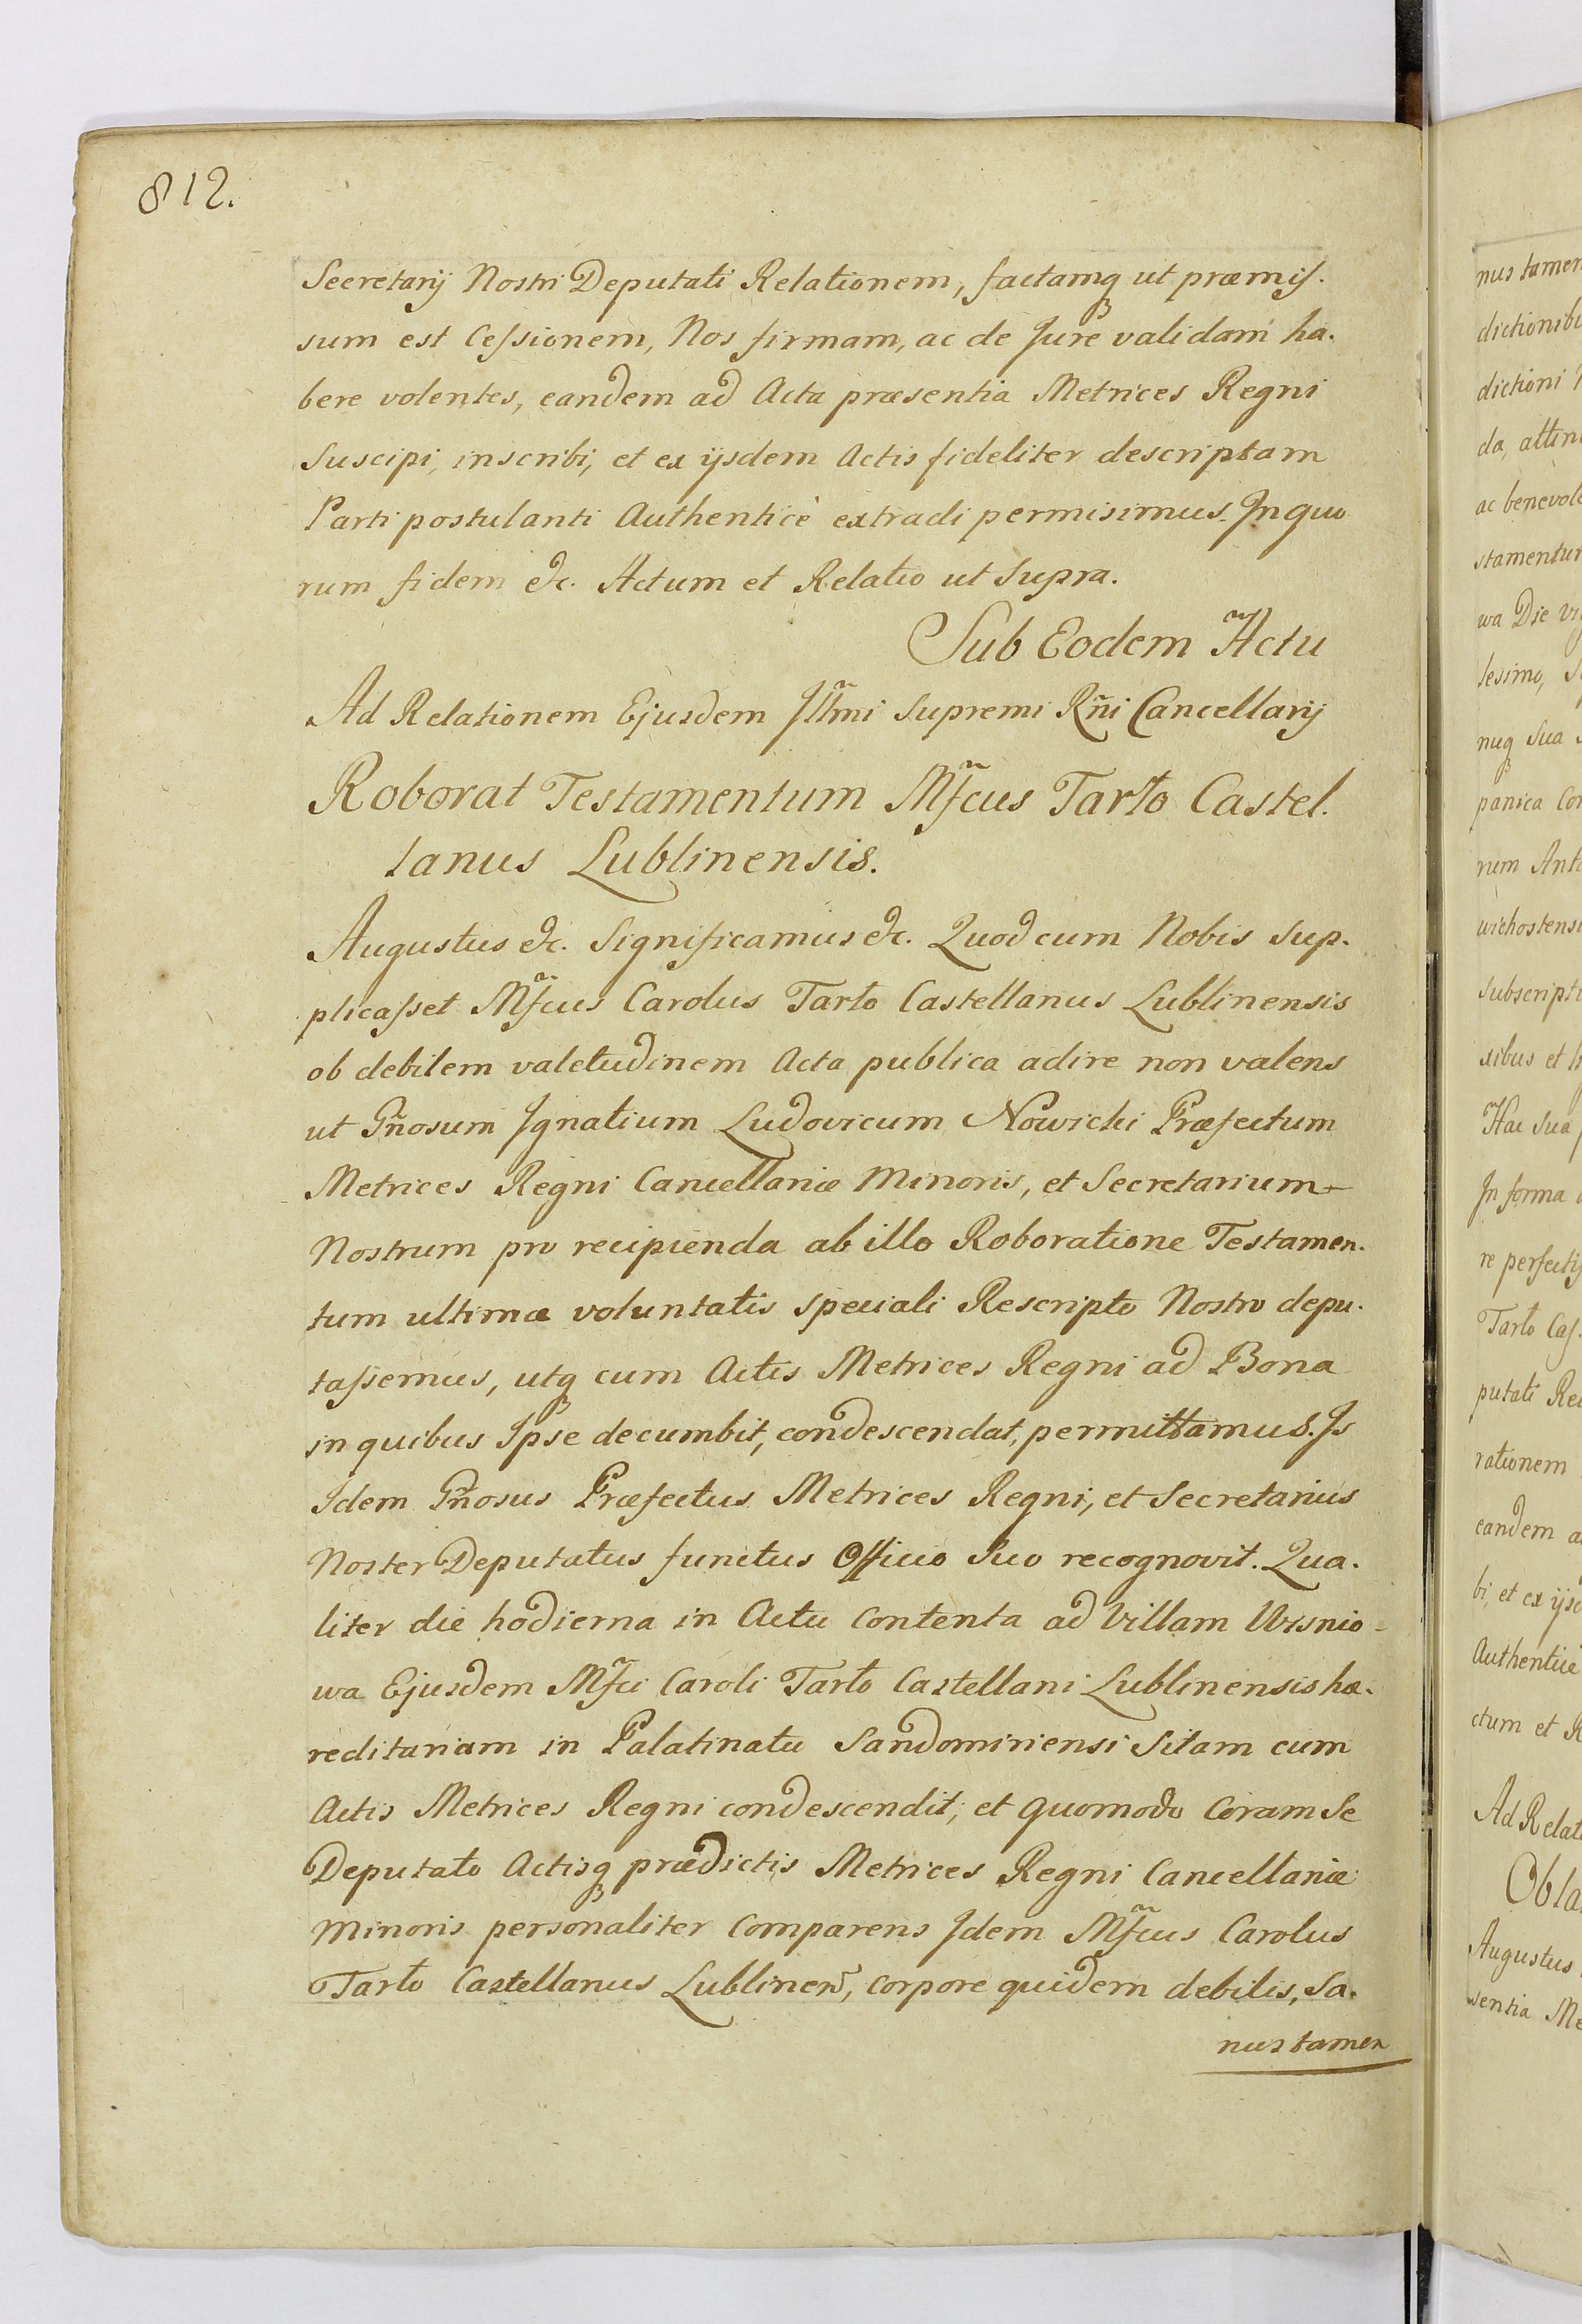 812.
Secretarij Nostri Deputati Relationem, factamq ut præmis.
sum est Cessionem, Nos firmam, ac de Jure validam ha.
bere volentes, eandem ad Acta præsentia Metrices Regni
Suscipi, inscribi, et ex ijsdem Actis fideliter descriptam
Parti postulanti Authenticè extradi permisimus. In quo
rum fidem &c. Actum et Relatio ut Supra.
Sub Eodem Actu
Ad Relationem Ejusdem Illm̃i Supremi Rñi Cancellarij
Roborat Testamentum Mf̃cus Tarło Castel.
lanus Lublinensis.
Augustus &c. Significamus &c. Quod cum Nobis Sup.
plicasset Mf̃cus Carolus Tarło Castellanus Lublinensis
ob debilem valetudinem Acta publica adire non valens
ut Gñosum Ignatium Ludovicum Nowicki Præfectum
Metrices Regni Cancellariæ Minoris, et Secretarium
Nostrum pro recipienda ab illo Roboratione Testamen.
tum ultimæ voluntatis speciali Rescripto Nostro depu.
tassemus, utq cum Actis Metrices Regni ad Bona
in quibus Ipse decumbit, condescendat, permittamus. Is
Idem Gñosus Præfectus Metrices Regni, et Secretarius
Noster Deputatus functus Officio Suo recognovit. Qua.
liter die hodierna in Actu Contenta ad Villam Wisnio-
wa Ejusdem Mf̃ci Caroli Tarło Castellani Lublinensis hæ.
reditariam in Palatinatu Sandomiriensi Sitam cum
Actis Metrices Regni condescendit, et quomodo Coram Se
Deputato Actisq prædictis Metrices Regni Cancellariæ
Minoris personaliter Comparens Idem Mf̃cus Carolus
Tarło Castellanus Lublineñ, corpore quidem debilis, Sa.
nus tamen
nus tamen
dictionibu
dictioni
da, attin
ac benevole
stamentum
wa Die
lesimo,
nuq Sua
panica Cor
rum Anto
wichostensi
Subscripti
xibus et
Hac Sua
In forma
re perfectis
Tarło Cas.
putati Rec
rationem
eandem a
bi, et ex ijsd
Authenticè
ctum et R
Ad Relati
Obla
Augustus
sentia Me